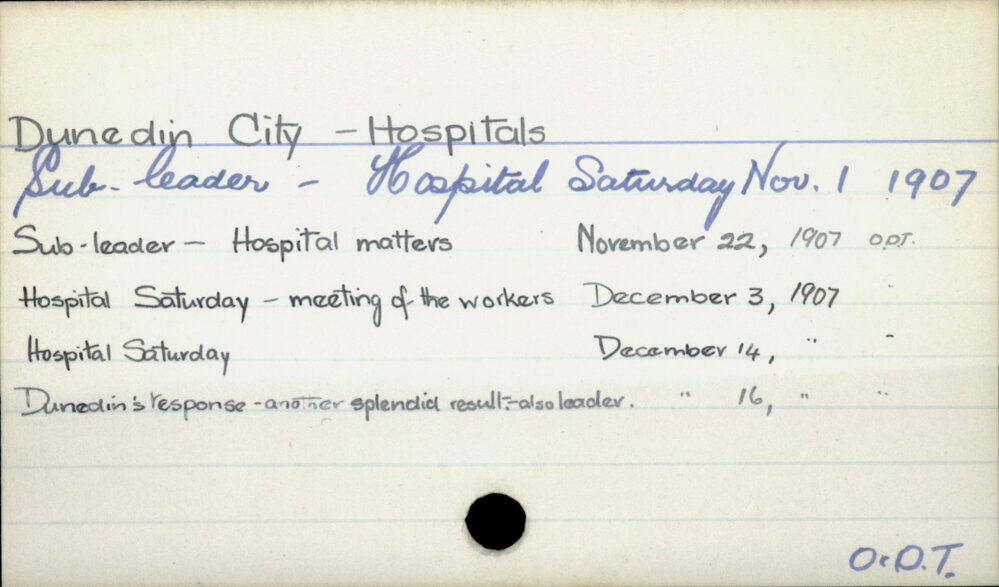 Dunedin City - Hospitals
Sub-leader - Hospital Saturday Nov. 1 1907
Sub-leader - Hospital matters November 22, 1907 O.D.T.
Hospital Saturday - meeting of the workers December 3, 1907 "
Hospital Saturday December 14, " "
Dunedin's response - another splendid result:- also leader. " 16, " "
O.D.T.